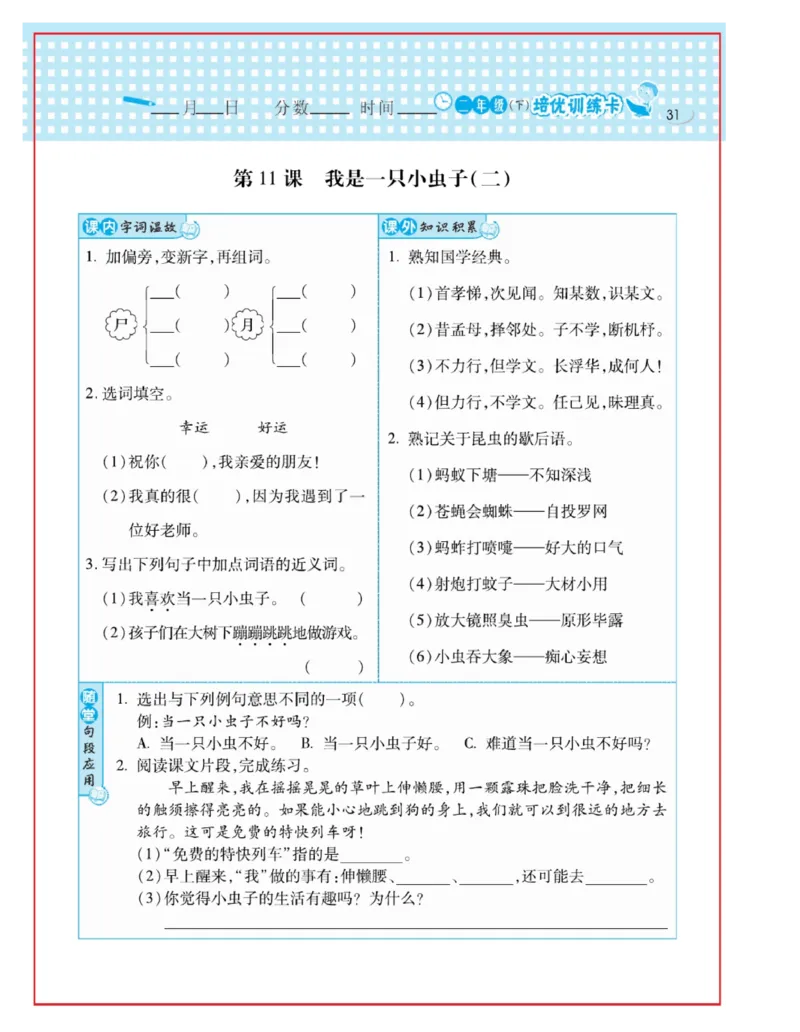 ___月___日 分数____ 时间____ 二年级(下)培优训练卡 31
第11课 我是一只小虫子(二)
课内字词温故
1. 加偏旁,变新字,再组词。
___( ) ___( )
尸 ___( ) 月 ___( )
___( ) ___( )
2. 选词填空。
幸运 好运
(1)祝你( ),我亲爱的朋友!
(2)我真的很( ),因为我遇到了一
位好老师。
3. 写出下列句子中加点词语的近义词。
(1)我喜欢当一只小虫子。 ( )
(2)孩子们在大树下蹦蹦跳跳地做游戏。
( )
课外知识积累
1. 熟知国学经典。
(1)首孝悌,次见闻。知某数,识某文。
(2)昔孟母,择邻处。子不学,断机杼。
(3)不力行,但学文。长浮华,成何人!
(4)但力行,不学文。任己见,昧理真。
2. 熟记关于昆虫的歇后语。
(1)蚂蚁下塘——不知深浅
(2)苍蝇会蜘蛛——自投罗网
(3)蚂蚱打喷嚏——好大的口气
(4)射炮打蚊子——大材小用
(5)放大镜照臭虫——原形毕露
(6)小虫吞大象——痴心妄想
随堂句段应用
1. 选出与下列例句意思不同的一项( )。
例:当一只小虫子不好吗?
A. 当一只小虫不好。 B. 当一只小虫子好。 C. 难道当一只小虫不好吗?
2. 阅读课文片段,完成练习。
早上醒来,我在摇摇晃晃的草叶上伸懒腰,用一颗露珠把脸洗干净,把细长
的触须擦得亮亮的。如果能小心地跳到狗的身上,我们就可以到很远的地方去
旅行。这可是免费的特快列车呀!
(1)“免费的特快列车”指的是_______。
(2)早上醒来,“我”做的事有:伸懒腰、______、______,还可能去_______。
(3)你觉得小虫子的生活有趣吗?为什么?